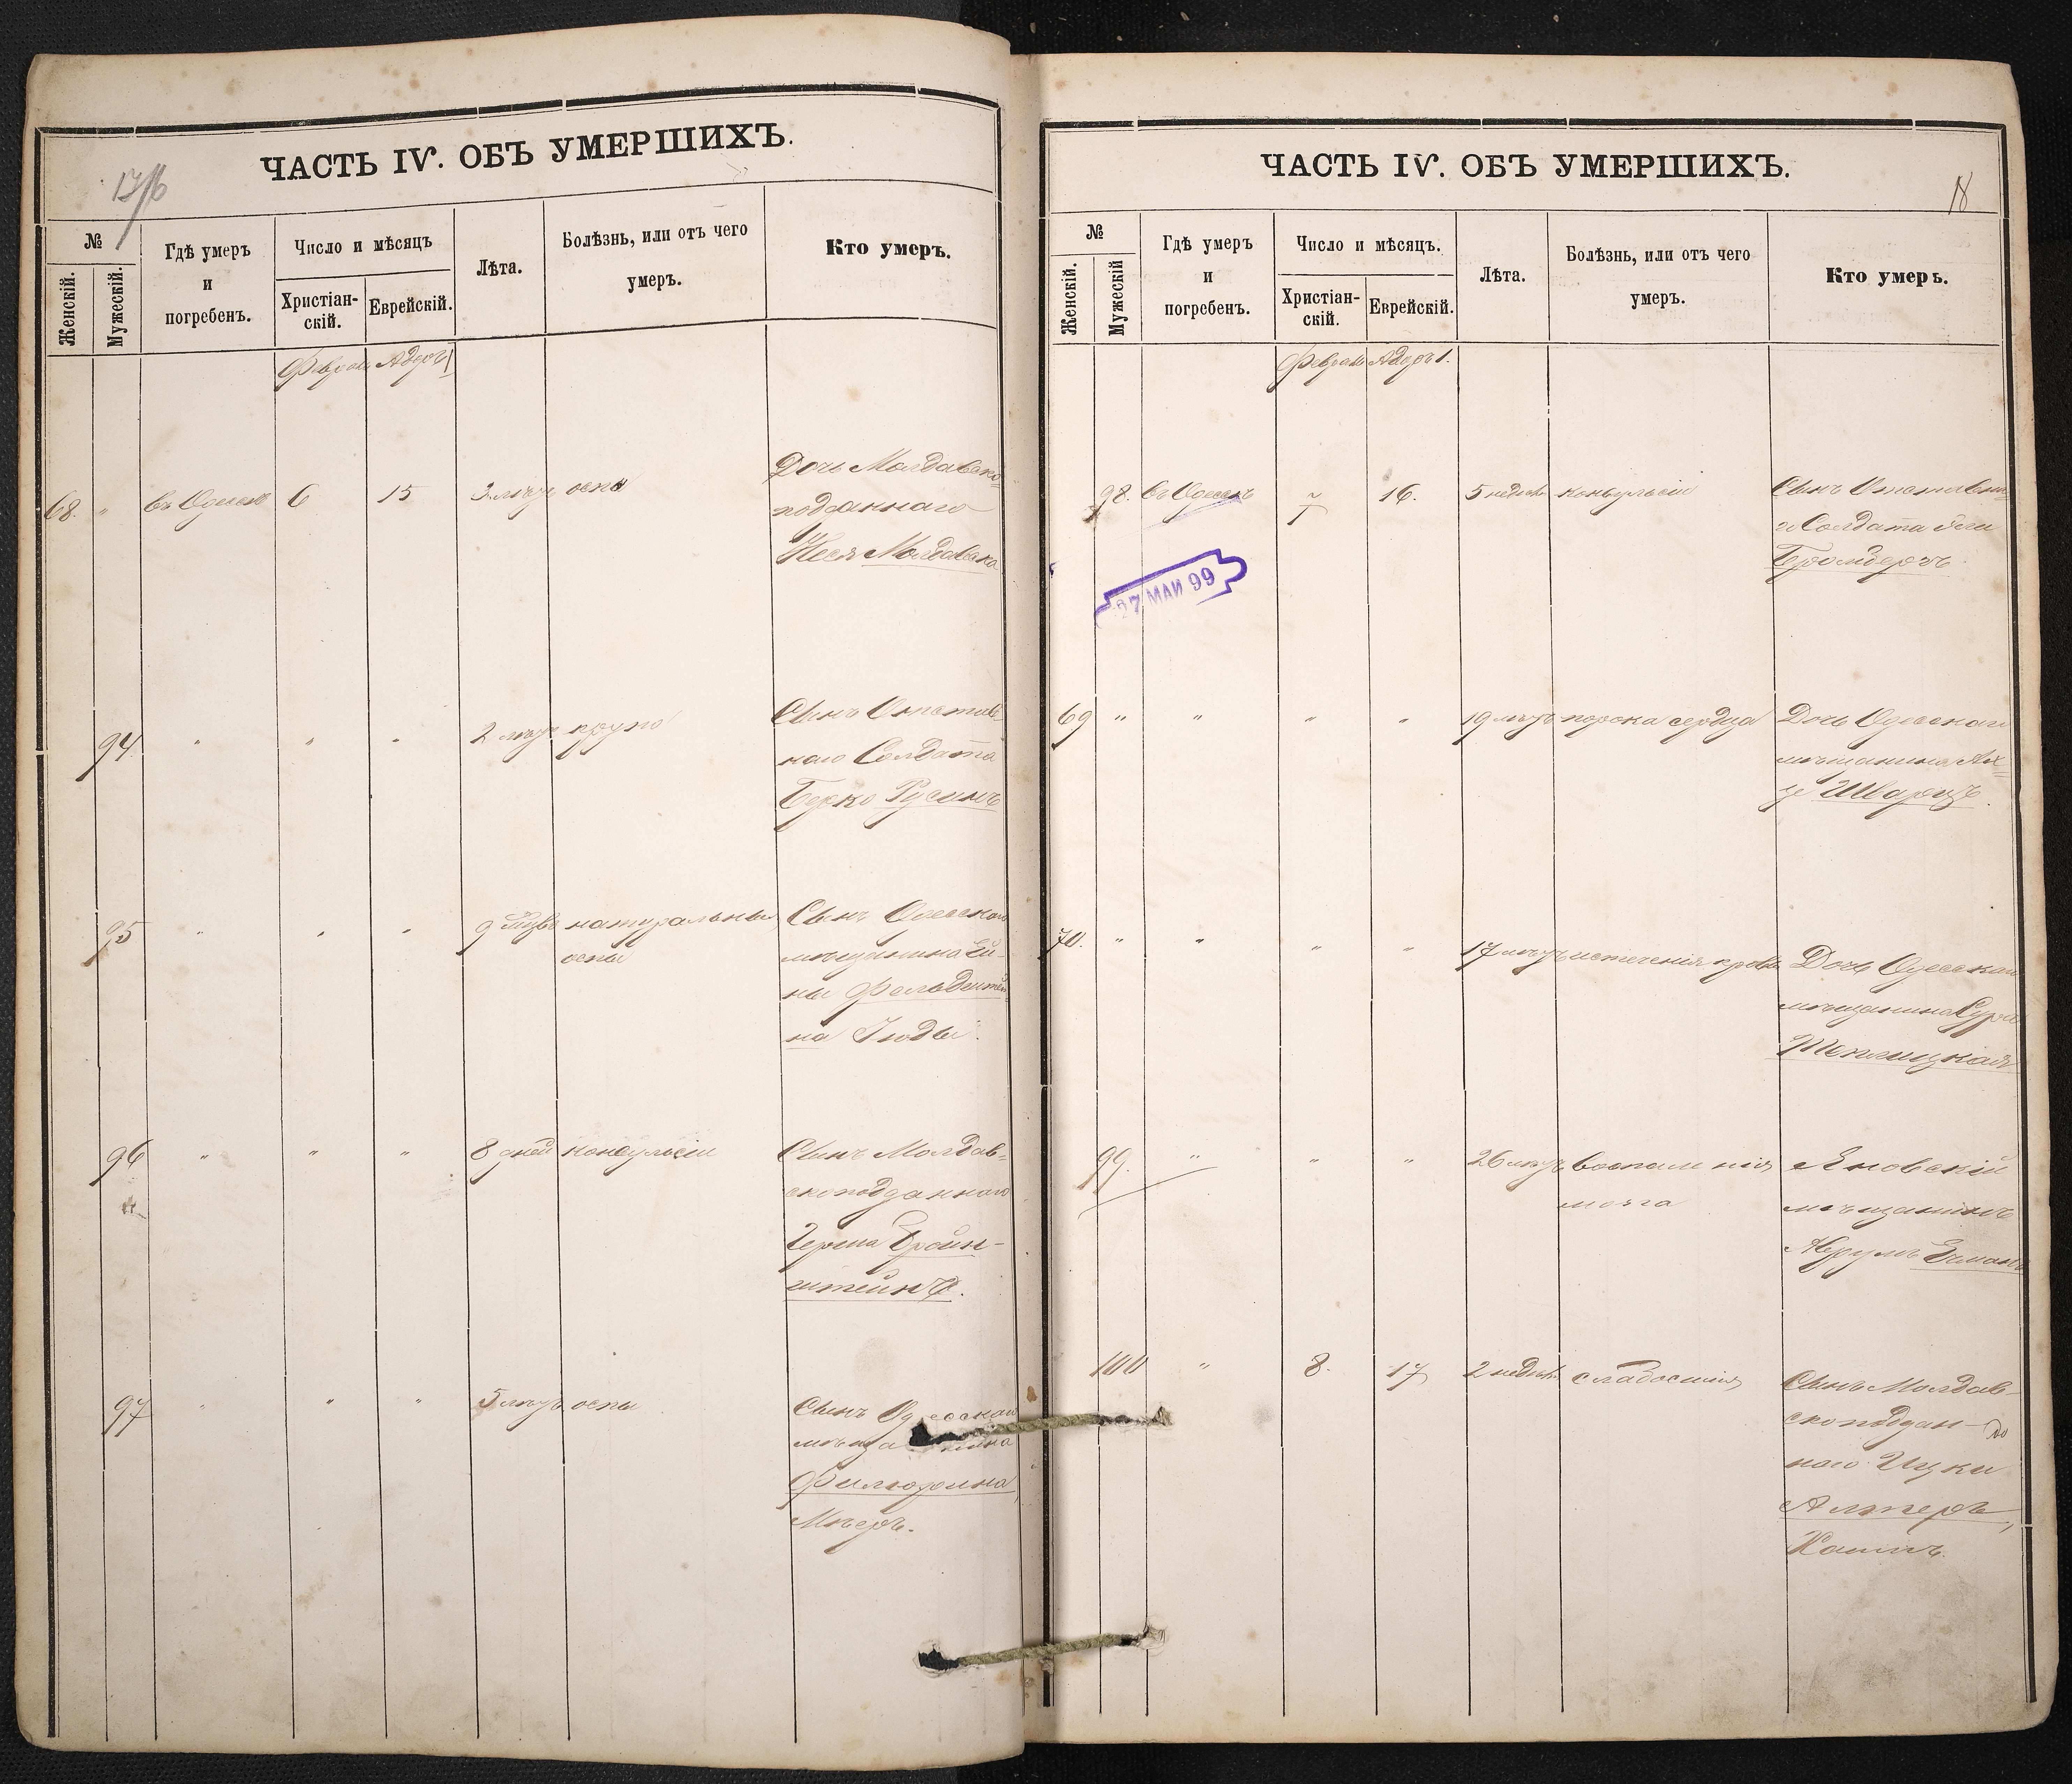 ЧАСТЬ IV. ОБЪ УМЕРШИХЪ.
№
Женскій.
Мужескій.
Гдѣ умеръ
и
погребенъ.
Число и мѣсяцъ
Христіан-
скій.
Еврейскій.
Лѣта.
Болѣзнь, или отъ чего
умеръ.
Кто умеръ.
Феврал Адаръ 1
68. " въ Одессѣ 6 15 3 лѣтъ оспа
Дочь Молдавско-
подданнаго
Молдавска
94 " " " 2 лѣтъ крупъ
Сынъ Отстав-
наго Солдата
Берко Русинъ
95 " " " 9 натуральныя
оспы
Сынъ Одесскаго
мѣщанина Ей-
ны Фельдштей-
на Іюды.
96 " " " 8 дней конвульсіи
Сынъ Молдав-
скоподданнаго
Герша Бройн-
штейнъ.
97 " " " 5 лѣтъ оспы
Сынъ Одесскаго
мѣщанина
Филюрина,
Мѣеръ.
ЧАСТЬ IV. ОБЪ УМЕРШИХЪ.
18
№
Женскій.
Мужескій
Гдѣ умеръ
и
погребенъ.
Число и мѣсяцъ.
Христіан-
скій.
Еврейскій.
Лѣта.
Болѣзнь, или отъ чего
умеръ.
Кто умеръ.
Феврал Адаръ 1.
98. въ Одессѣ 7 16. 5 недѣль конвульсіи
Сынъ Отставна-
го Солдата
27 МАИ 99
69 " " " " 19 лѣтъ порока сердца
Дочь Одесскаго
мѣщанина
Шварцъ.
70. " " " " 17 лѣтъ истеченія крови
Дочь Одесскаго
мѣщанина Сура
Теплицкая
99. " " " 26 лѣтъ воспаленія
мозга
Яновскій
мѣщанинъ
100 " 8. 17 2 недѣль слабости
Сынъ Молдав-
скоподдан-
наго Ицки
Алтеръ,
Хаимъ.